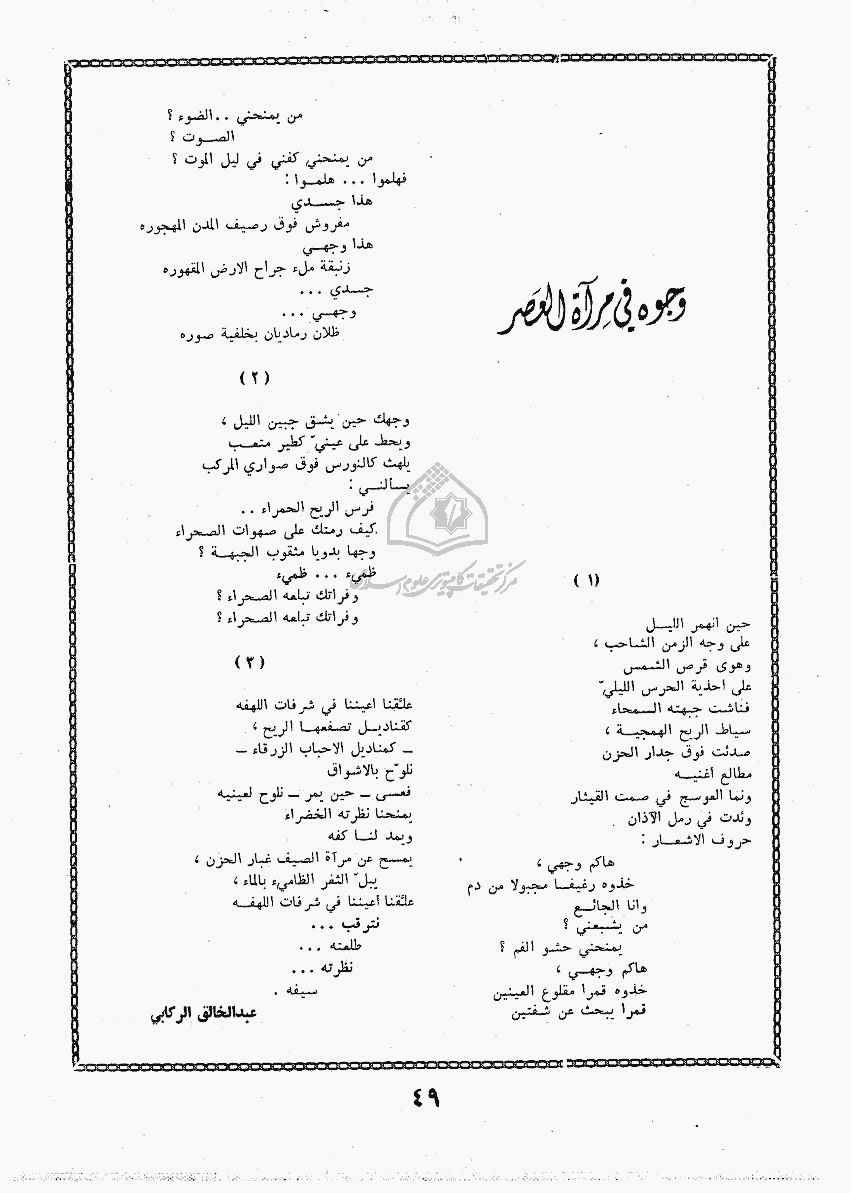 وجوه في مرآة العصر
(١)
حين انهمر الليل
على وجه الزمن الشاحب ،
وهوى قرص الشمس
على احذية الحرس الليليّ
فناشت جبهته السمحاء
سياط الريح الهمجية ،
صدئت فوق جدار الحزن
مطالع أغنيه
ونما العوسج في صمت القيثار
وئدت في رمل الآذان
حروف الاشعار :
هاكم وجهي ،
خذوه رغيفا مجبولا من دم
وانا الجائع
من يشبعني ؟
يمنحني حشو الفم ؟
هاكم وجهي ،
خذوه قمرا مقلوع العينين
قمرا يبحث عن شفتين
من يمنحني ..الضوء ؟
الصوت ؟
من يمنحني كفني في ليل الموت ؟
فهلموا ... هلموا :
هذا جسدي
مفروش فوق رصيف المدن المهجوره
هذا وجهي
زنبقة ملء جراح الارض المقهوره
جسدي ...
وجهي ...
ظلان رماديان بخلفية صوره
(٢)
وجهك حين يشق جبين الليل ،
ويحط على عينيّ كطير متعب
يلهث كالنورس فوق صواري المركب
يسألني :
فرس الريح الحمراء ..
كيف رمتك على صهوات الصحراء
وجها بدويا مثقوب الجبهة ؟
ظميء ... ظميء
وفراتك تبلعه الصحراء ؟
وفراتك تبلعه الصحراء ؟
مركز تحقيقات كامپيوترى علوم اسلامى
(٣)
علقنا اعيننا في شرفات اللهفه
كقناديل تصفعها الريح ،
ـ كمناديل الاحباب الزرقاء ـ
نلوّح بالاشواق
فعسى ـ حين يمر ـ نلوح لعينيه
يمنحنا نظرته الخضراء
ويمد لنا كفه
يمسح عن مرآة الصيف غبار الحزن ،
يبلّ الثغر الظاميء بالماء ،
علقنا أعيننا في شرفات اللهفه
نترقب ...
طلعته ...
نظرته ...
سيفه .
عبدالخالق الركابي
٤٩